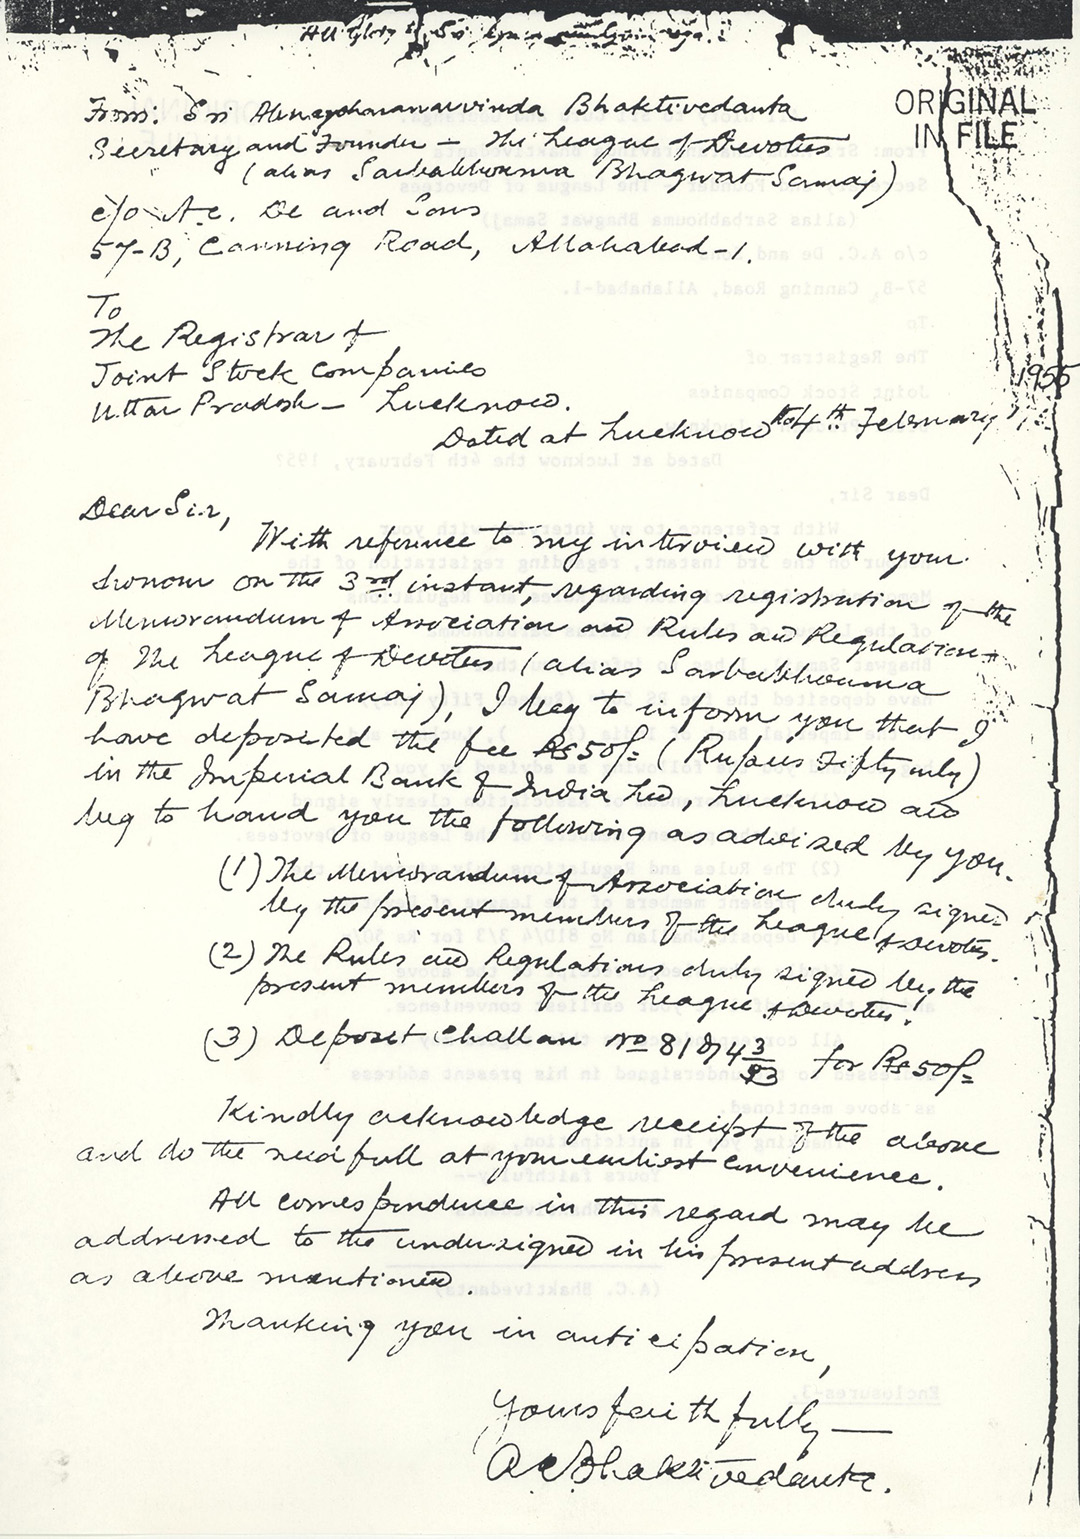 All Glory to Sri Guru and Gauranga.
ORIGINAL
IN FILE
From: Sri Abhaycharanaravinda Bhaktivedanta
Secretary and Founder – The League of Devotees
(alias Sarbabhouma Bhagwat Samaj)
c/o A.C. De and Sons
57-B, Canning Road, Allahabad-1.
To
The Registrar of
Joint Stock Companies
Uttar Pradesh – Lucknow.
Dated at Lucknow the 4th February, 1955
Dear Sir,
With reference to my interview with your
honour on the 3rd instant, regarding registration of the
Memorandum of Association and Rules and Regulations
of the League of Devotees (alias Sarbabhouma
Bhagwat Samaj), I beg to inform you that I
have deposited the fee Rs 50/= (Rupees Fifty only)
in the Imperial Bank of India Ltd Lucknow and
beg to hand you the following as advised by you.
(1) The Memorandum of Association duly signed
by the present members of the League of Devotees.
(2) The Rules and Regulations duly signed by the
present members of the League of Devotees.
(3) Deposit Challan No for Rs 50/=
Kindly acknowledge receipt of the above
and do the needfull at your earliest convenience.
All correspondence in this regard may be
addressed to the undersigned in his present address
as above mentioned.
Thanking you in anticipation,
Yours faithfully—
A.C. Bhaktivedanta.